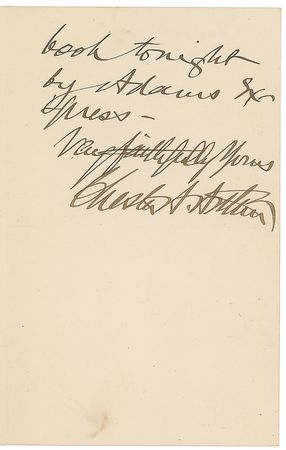 book tonight
by Adams Ex
press -
Very faithfully Yours
Chester A. Arthur